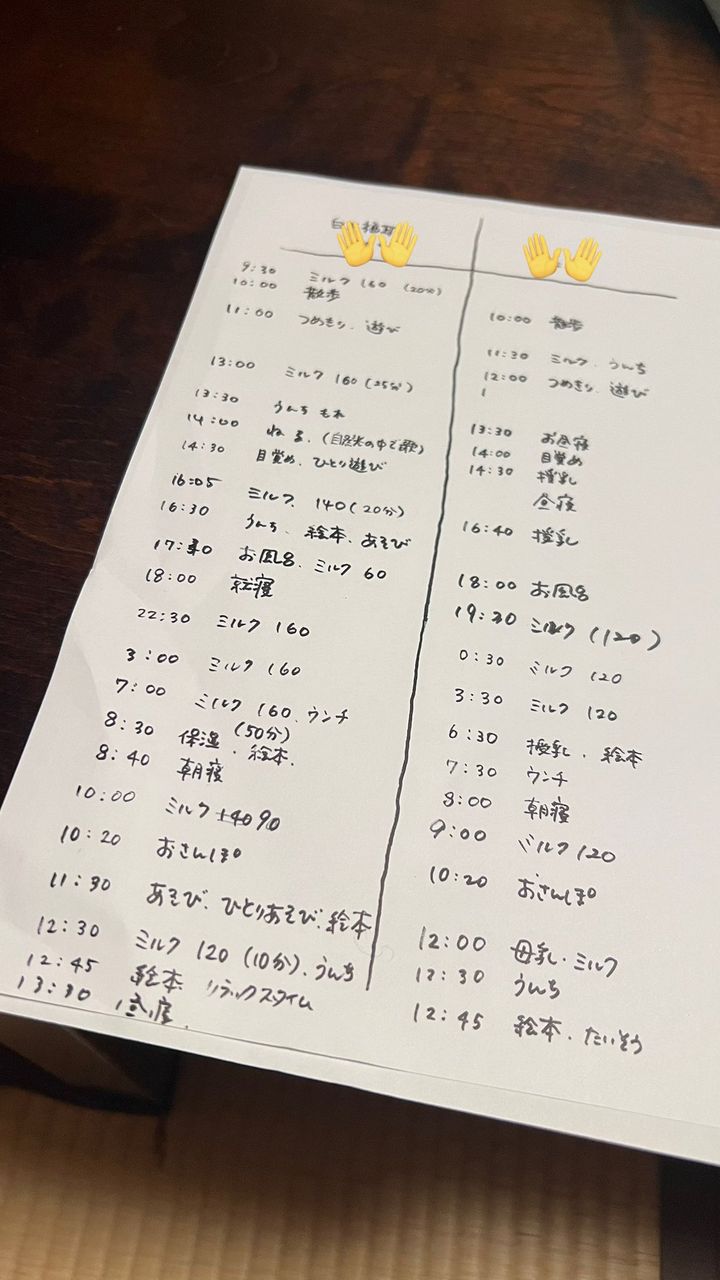 9:30 ミルク 160 (20分)
10:00 散歩
11:00 つめきり、遊び
13:00 ミルク 160 (25分)
13:30 うんち もれ
14:00 ねる、(自然光の中で歌)
14:30 目覚め、ひとり遊び
16:05 ミルク、140(20分)
16:30 うんち、絵本、あそび
17:40 お風呂、ミルク 60
18:00 就寝
22:30 ミルク 160
3:00 ミルク 160
7:00 ミルク 160、ウンチ
(50分)
8:30 保湿・絵本、
8:40 朝寝
10:00 ミルク 90
10:20 おさんぽ
11:30 あそび、ひとりあそび、絵本
12:30 ミルク 120 (10分)、うんち
12:45 絵本 リラックスタイム
13:30 昼寝、
10:00 散歩
11:30 ミルク、うんち
12:00 つめきり、遊び
13:30 お昼寝
14:00 目覚め
14:30 授乳
昼寝
16:40 授乳
18:00 お風呂
19:20 ミルク (120)
0:30 ミルク 120
3:30 ミルク 120
6:30 授乳、絵本
7:30 ウンチ
8:00 朝寝
9:00 ミルク 120
10:20 おさんぽ
12:00 母乳・ミルク
12:30 うんち
12:45 絵本、たいそう